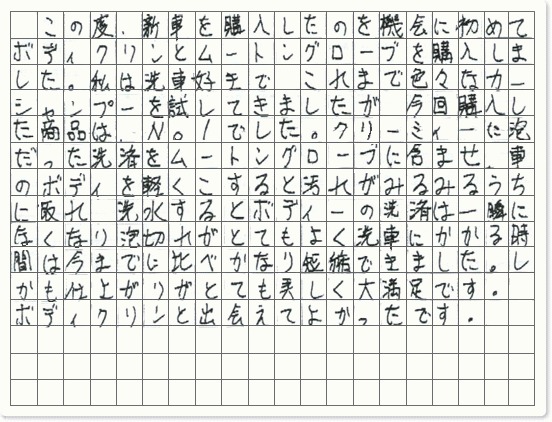 この度、新車を購入したのを機会に初めて
ボディクリンとムートングローブを購入しま
した。私は洗車好きで これまで色々なカー
シャンプーを試してきましたが 今回購入し
た商品は、No.1でした。クリーミィーに泡
だった洗済をムートングローブに含ませ、車
のボディを軽くこすると汚れがみるみるうち
に取れ 洗水するとボディーの洗済は一瞬に
なくなり泡切れがとてもよく洗車にかかる時
間は今までに比べかなり短縮できました。し
かも仕上がりがとても美しく大満足です。
ボディクリンと出会えてよかったです。